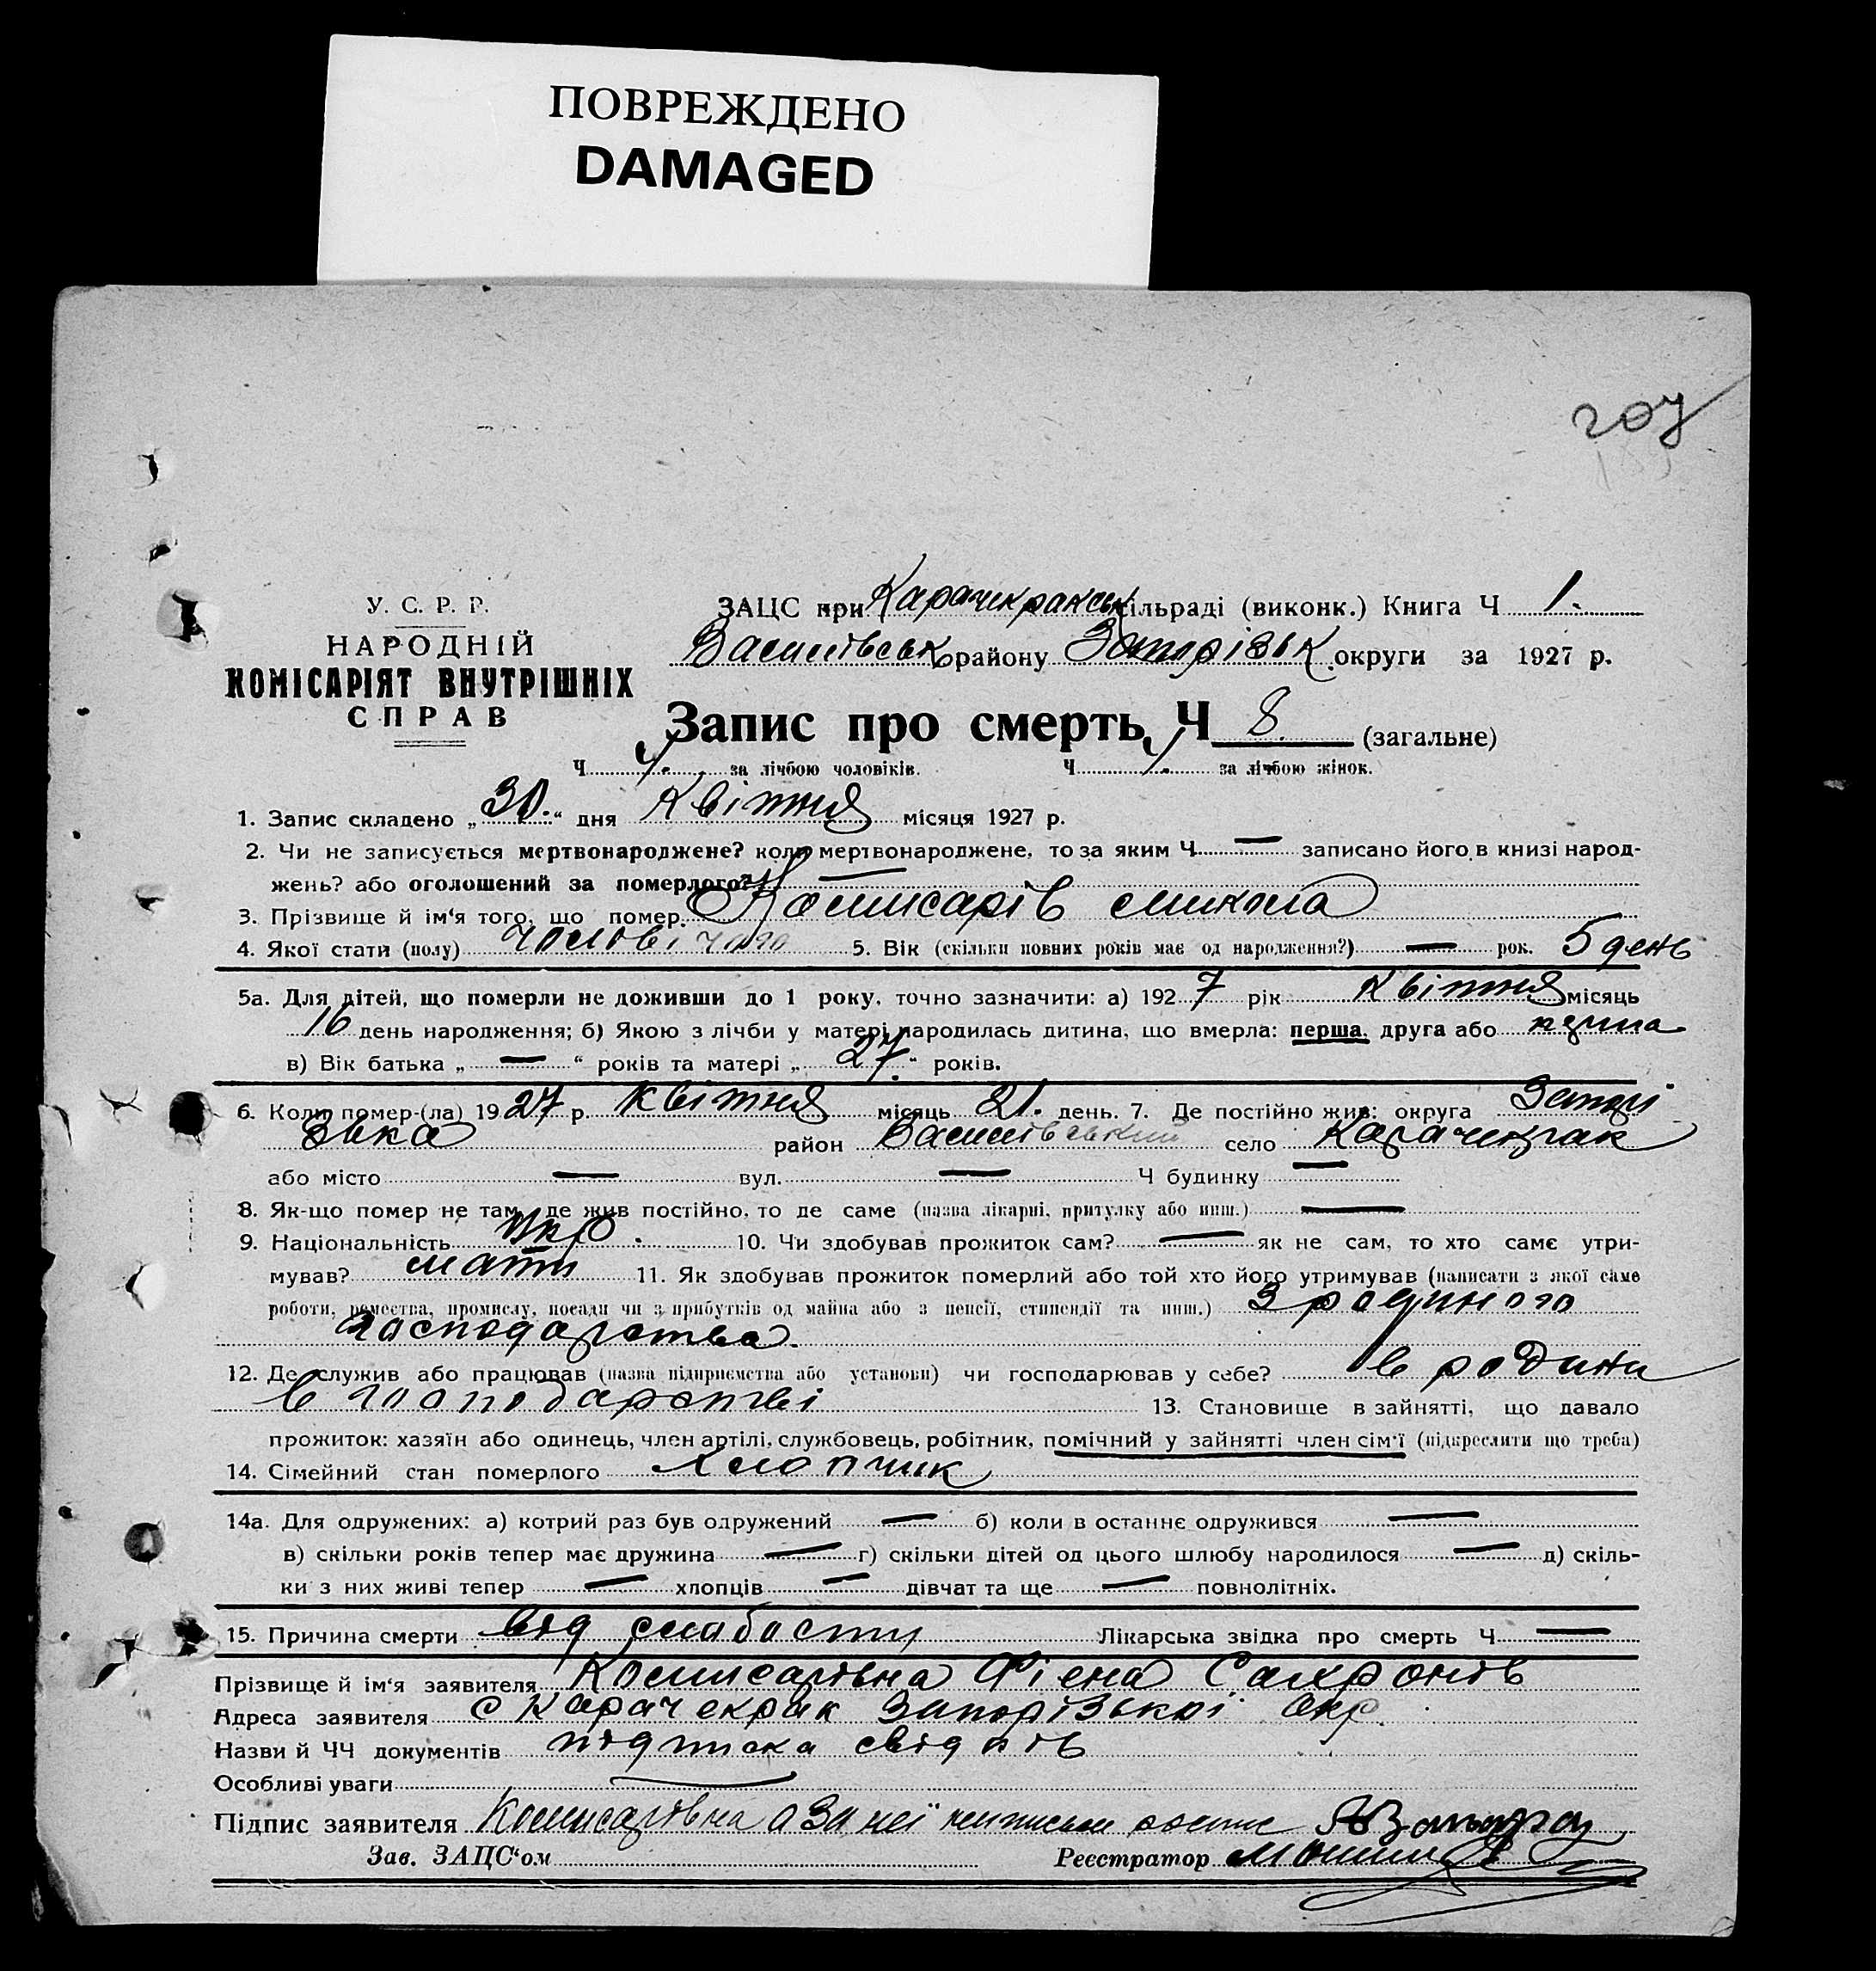 ПОВРЕЖДЕНО
DAMAGED
207
У. С. Р. Р.
НАРОДНІЙ
КОМІСАРІЯТ ВНУТРІШНІХ
СПРАВ
ЗАЦС при Карачекракськ сільраді (виконк.) Книга Ч 1.
Василівськ району Запоріжьк округи за 1927 р.
Запис про смерть Ч 8. (загальне)
Ч за лічбою чоловіків. Ч за лічбою жінок.
1. Запис складено „30.“ дня Квітня місяця 1927 р.
2. Чи не записується мертвонароджене? коли мертвонароджене, то за яким Ч — записано його в книзі народ-
жень? або оголошений за померлого? —
3. Прізвище й ім'я того, що помер. Комисарів Микола
4. Якої стати (полу) чоловічого 5. Вік (скільки повних років має од народження?) — рок. 5 день
5а. Для дітей, що померли не доживши до 1 року, точно зазначити: а) 1927 рік Квітня місяць
16 день народження; б) Якою з лічби у матері народилась дитина, що вмерла: перша, друга або перша
в) Вік батька „—“ років та матері „27.“ років.
6. Коли помер-(ла) 1927 р. Квітня місяць 21. день. 7. Де постійно жив: округа Запорі
зька район Василівський село Карачекрак
або місто — вул. — Ч будинку —
8. Як-що помер не там, де жив постійно, то де саме (назва лікарні, притулку або инш.) —
9. Національність Укр. 10. Чи здобував прожиток сам? — як не сам, то хто саме утри-
мував? мати 11. Як здобував прожиток померлий або той хто його утримував (написати з якої саме
роботи, ремества, промислу, посади чи з прибутків од майна або з пенсії, стипендії та инш.) З родиного
господарства.
12. Де служив або працював (назва підприємства або установи) чи господарював у себе? в родини
в господарстві 13. Становище в зайнятті, що давало
прожиток: хазяїн або одинець, член артілі, службовець, робітник, помічний у зайнятті член сім'ї (підкреслити що треба)
14. Сімейний стан померлого Хлопчик
14а. Для одружених: а) котрий раз був одружений — б) коли в останнє одружився —
в) скільки років тепер має дружина — г) скільки дітей од цього шлюбу народилося — д) скіль-
ки з них живі тепер — хлопців — дівчат та ще — повнолітніх.
15. Причина смерти від слабости Лікарська звідка про смерть Ч —
Прізвище й ім'я заявителя Комисарівна Фіена
Адреса заявителя с Карачекрак Запорізької окр.
Назви й ЧЧ документів підписка свідків
Особливі уваги —
Підпис заявителя Комисарівна а за неї
Зав. ЗАЦС'ом Реєстратор